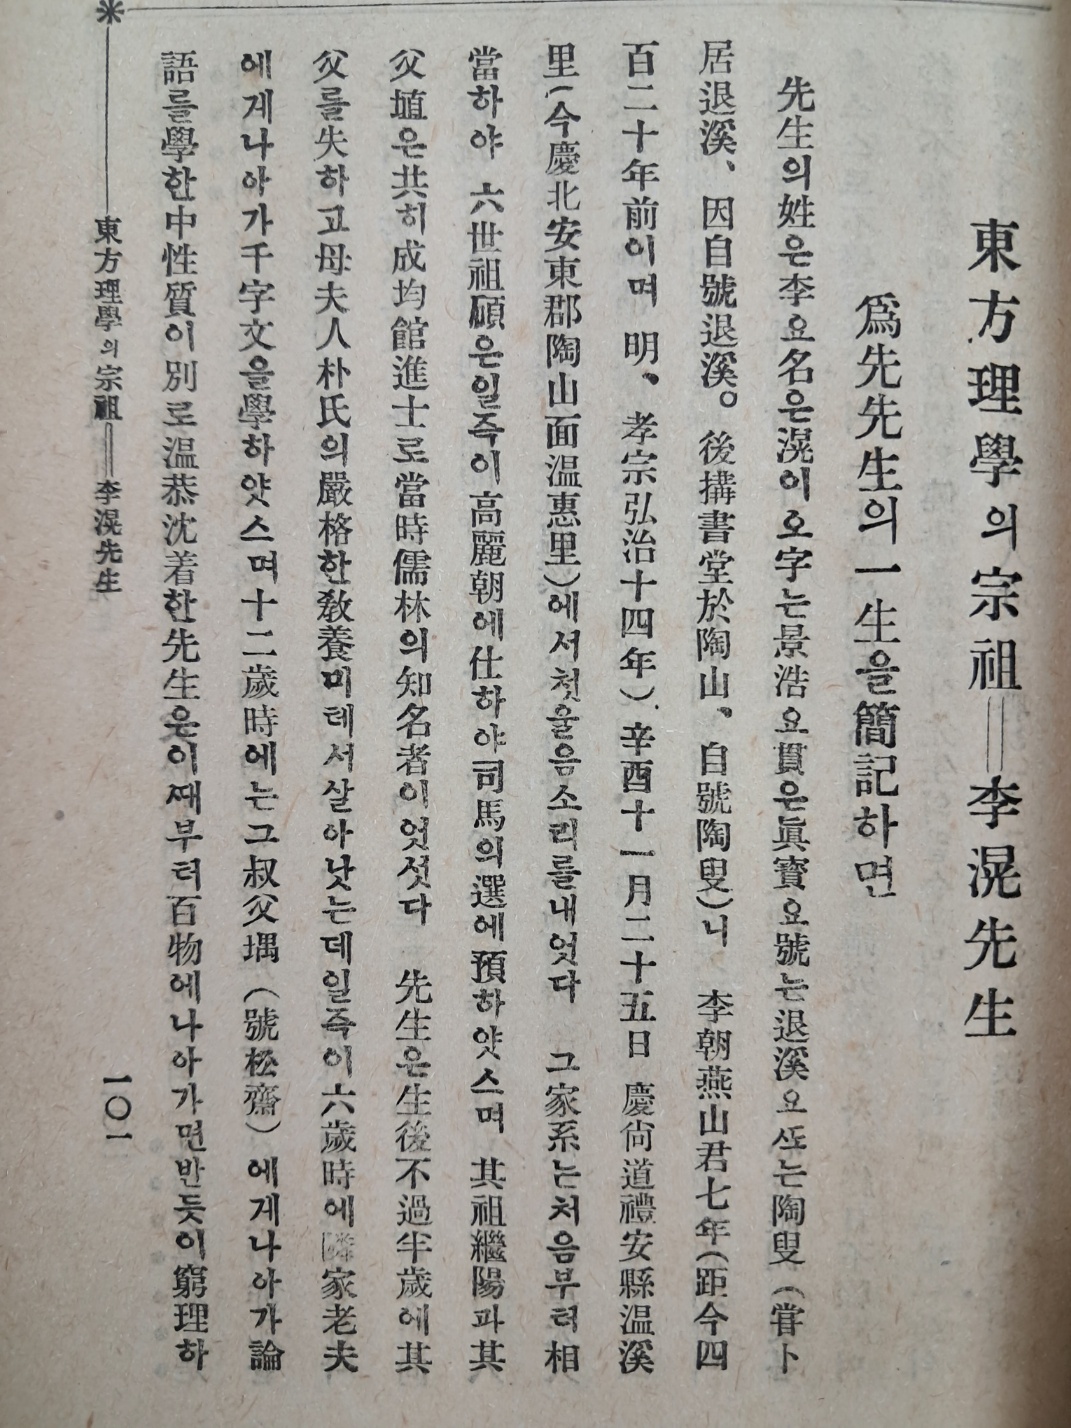 東方理學의宗祖＝李滉先生
爲先先生의一生을簡記하면
先生의姓은李요名은滉이오字는景浩요貫은眞寶요號는退溪요ᄯᅩ는陶叟(嘗卜
居退溪、因自號退溪。後搆書堂於陶山、自號陶叟)니 李朝燕山君七年(距今四
百二十年前이며 明、孝宗弘治十四年)辛酉十一月二十五日 慶尙道禮安縣溫溪
里(今慶北安東郡陶山面溫惠里)에서첫울음소리를내엇다 그家系는처음부터相
當하야 六世祖碩은일즉이高麗朝에仕하야司馬의選에預하얏스며 其祖繼陽과其
父埴은共히成均館進士로當時儒林의知名者이엇섯다 先生은生後不過半歲에其
父를失하고母夫人朴氏의嚴格한敎養미테서살아낫는데일즉이六歲時에隣家老夫
에게나아가千字文을學하얏스며十二歲時에는그叔父堣(號松齋)에게나아가論
語를學한中性質이別로溫恭沈着한先生은이ᄯᅢ부터百物에나아가면반듯이窮理하
東方理學의宗祖＝李滉先生
一〇一